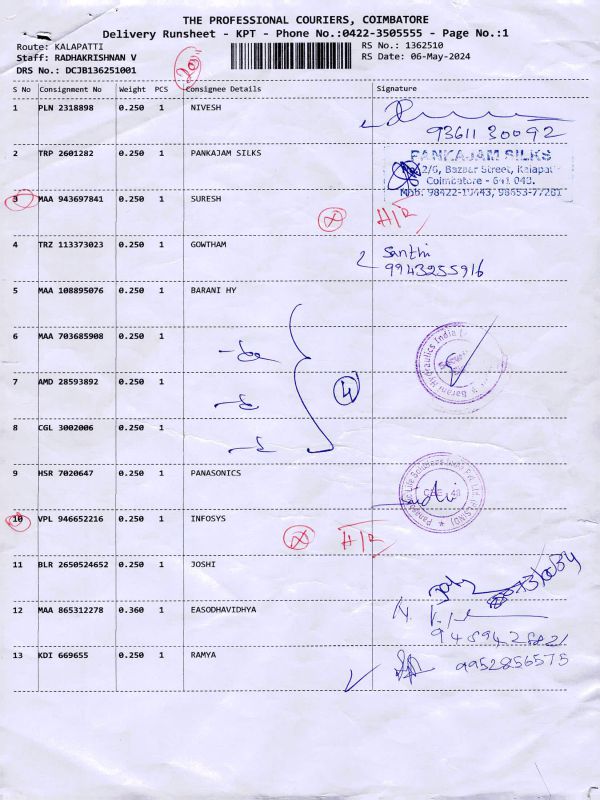 THE PROFESSIONAL COURIERS, COIMBATORE
Delivery Runsheet - KPT - Phone No.:0422-3505555 - Page No.:1
Route: KALAPATTI
Staff: RADHAKRISHNAN V
DRS No.: DCJB136251001
RS No.: 1362510
RS Date: 06-May-2024
S No Consignment No Weight PCS Consignee Details Signature
1 PLN 2318898 0.250 1 NIVESH
93611 30092
2 TRP 2601282 0.250 1 PANKAJAM SILKS
PANKAJAM SILKS
2/6, Bazaar Street, Kalapat
Coimbatore - 641 048.
3 MAA 943697841 0.250 1 SURESH
H/R
4 TRZ 113373023 0.250 1 GOWTHAM
Santhi
9943255916
5 MAA 108895076 0.250 1 BARANI HY
6 MAA 703685908 0.250 1
7 AMD 28593892 0.250 1
4
8 CGL 3002006 0.250 1
9 HSR 7020647 0.250 1 PANASONICS
10 VPL 946652216 0.250 1 INFOSYS
H/R
11 BLR 2650524652 0.250 1 JOSHI
12 MAA 865312278 0.360 1 EASODHAVIDHYA
13 KDI 669655 0.250 1 RAMYA
9952856575